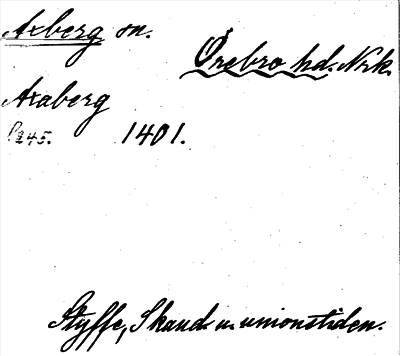 Axberg sn.
Örebro hd. Nrk.
Axaberg
1401.
Styffe, Skand. u. unionstiden.